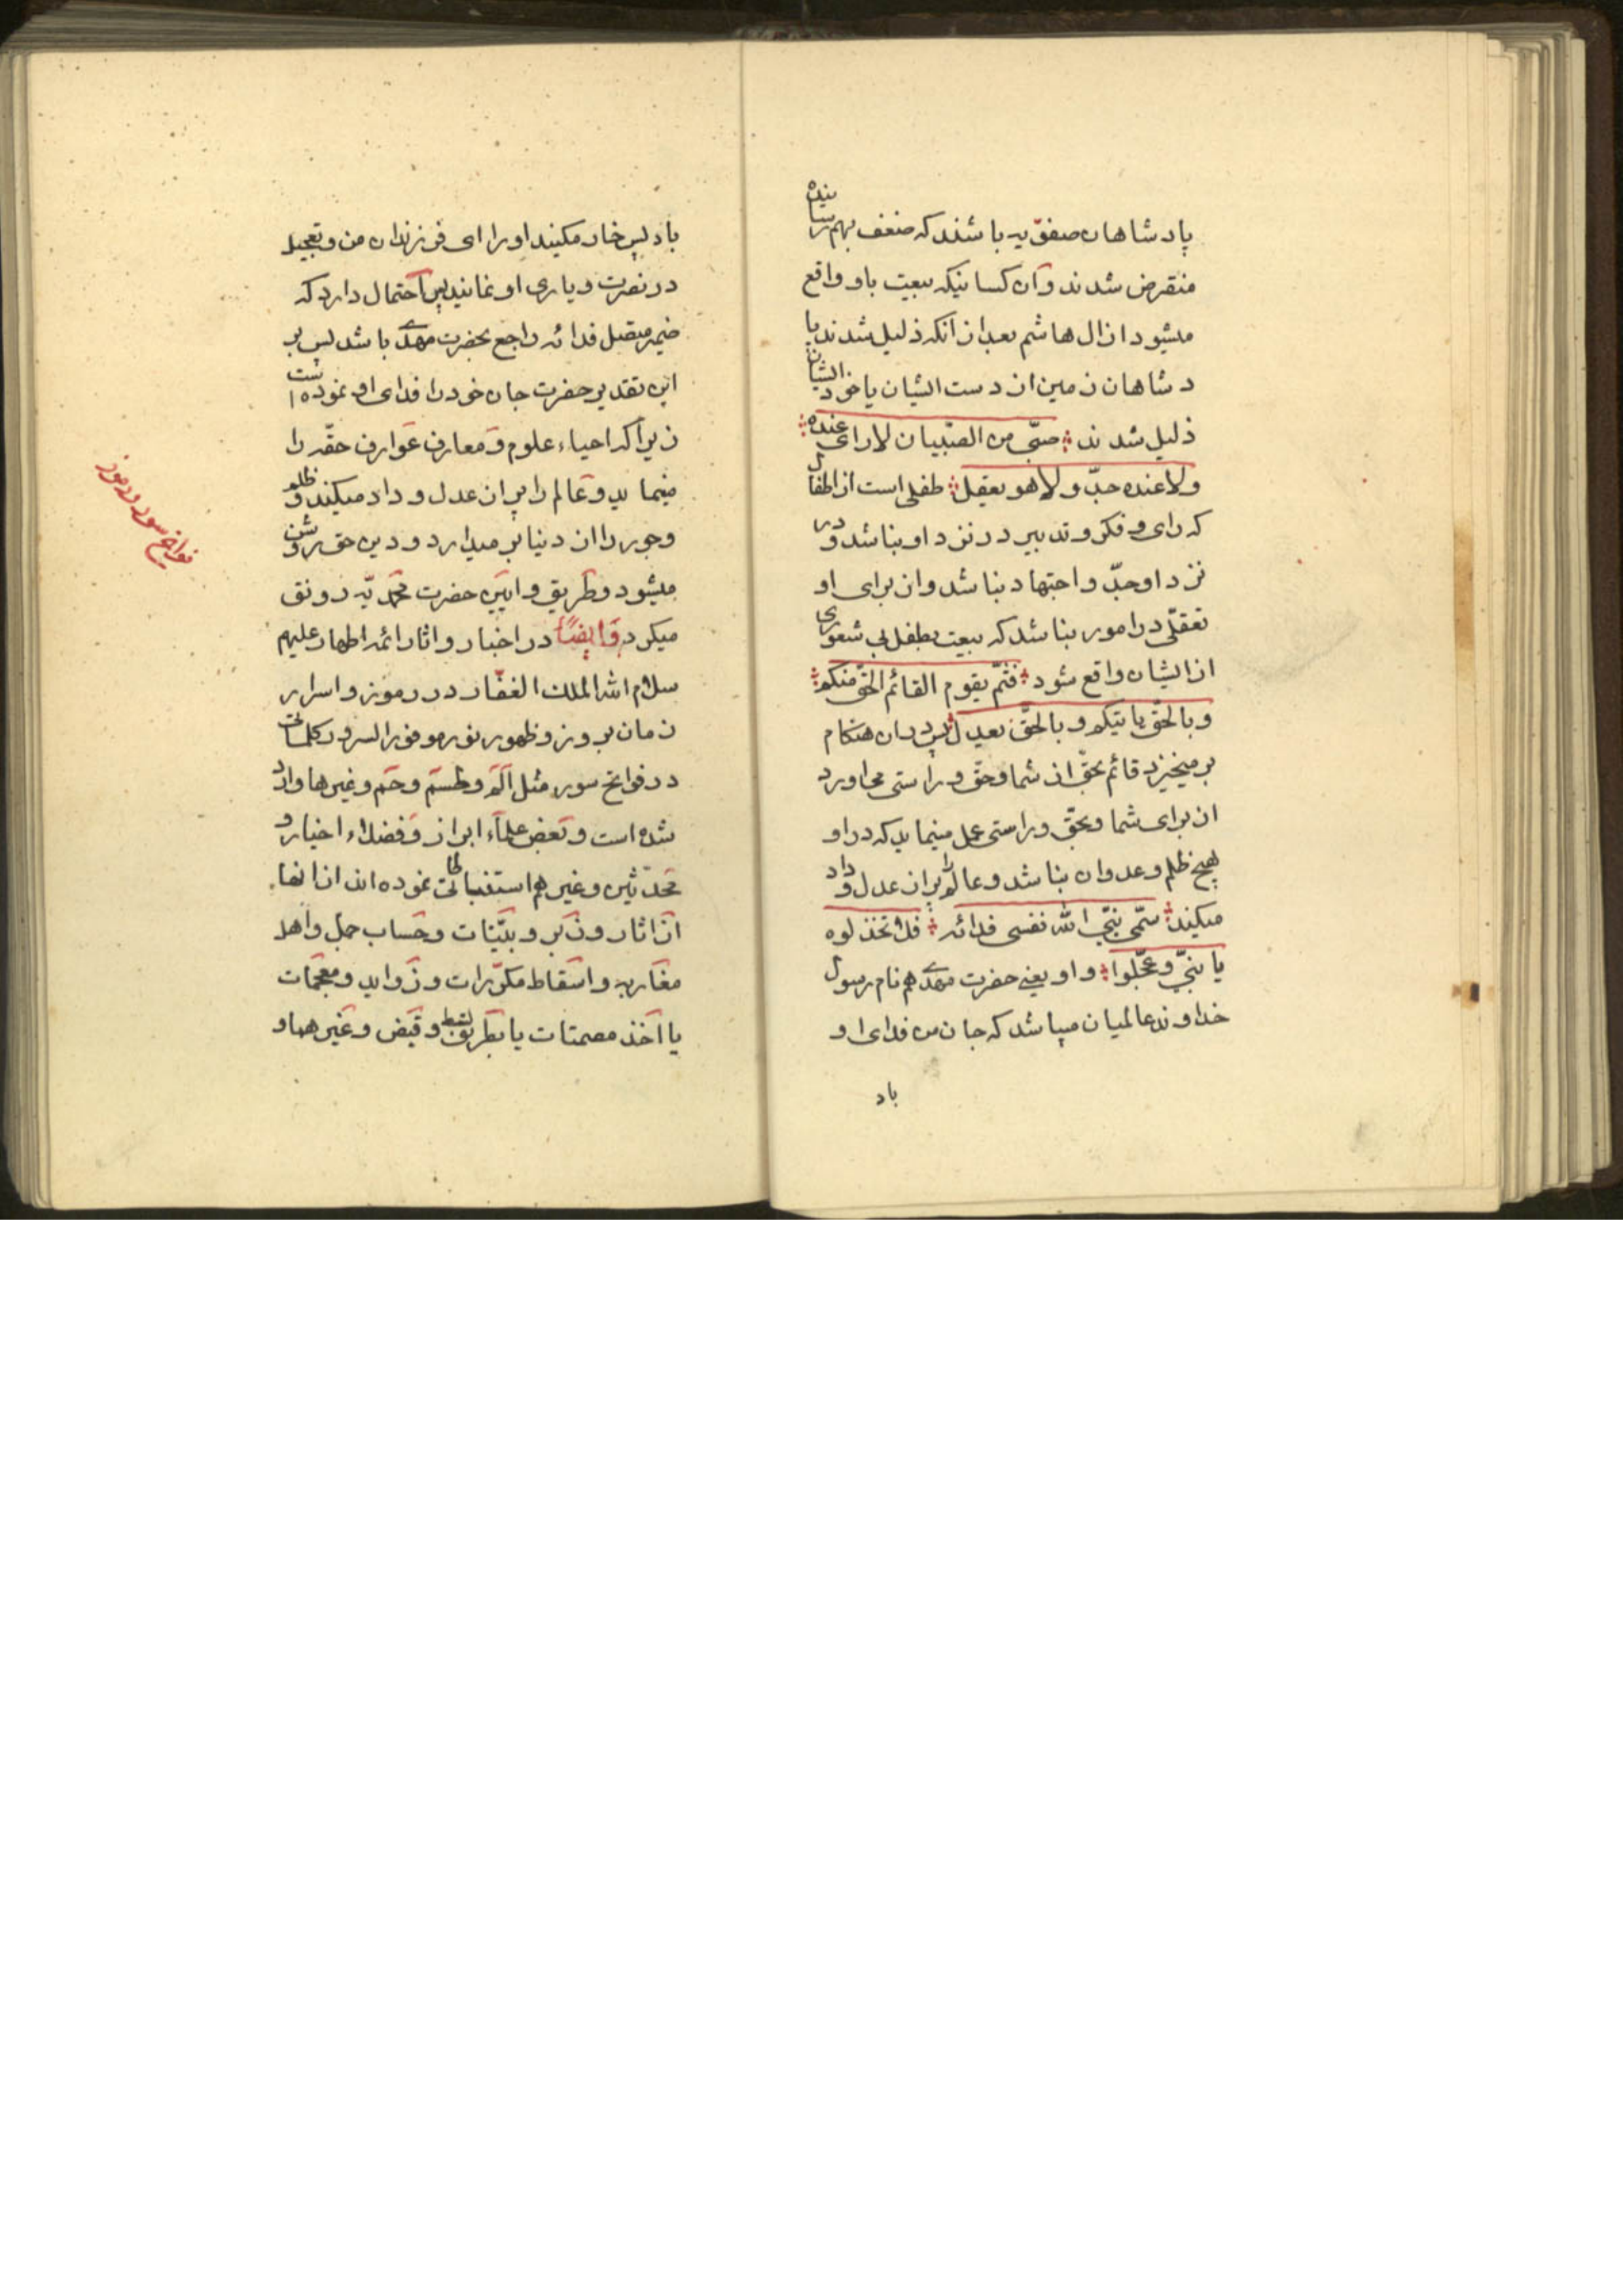 پادشاهان صفویه باشند که ضعف بهم رسانیده
منقرض شدند وآن کسانیکه بیعت باو واقع
میشود از ال هاشم بعد از انکه ذلیل شدند پا
دشاهان زمین از دست ایشان یا خود ایشان
ذلیل شدند صبّی من الصّبیان لا رای عنده
ولا عنده جدّ ولا هو یعقل طفلی است از اطفال
که رای و فکر و تدبیر در نزد او نباشد و در
نزد او جدّ و اجتهاد نباشد وان برای او
تعقلّی در امور نباشد که بیعت بطفل بی شعوری
از ایشان واقع شود فثمّ یقوم القائم الحقّ منکم
وبالحقّ یاتیکم و بالحقّ یعدل پس در ان هنکام
برمیخیزد قائم بحقّ از شما وحقّ و راستی می اورد
ان برای شما وبحقّ وراستی عمل مینماید که در او
هیچ ظلم وعدوان نباشد وعالم را پر از عدل و داد
میکند سمّی نبّی الله نفسی فدائه فلا تخذلوه
یا بنیّ وعجّلوا واو یعنی حضرت مهدی هم نام رسول
خداوند عالمیان میباشد که جان من فدای او
باد
باد پس خار مکنید او را ای فرزندان من وتعجیل
در نصرت ویاری او نمانید پس احتمال دارد که
ضمیر متصل فدائه راجع بحضرت مهدی باشد پس بر
این تقدیر حضرت جان خود را فدای او نموده است
زیرا که احیاء علوم ومعارف عوارف حقّه را
مینماید وعالم را پر از عدل وداد میکند و ظلم
وجور را از دنیا بر میدارد ودین حق روشن
میشود وطریق وایین حضرت محمّدیّه رونق
میکرد وایضاً در اخبار واثار ائمه اطهار علیهم
سلام الله الملک الغفّار در رموز واسرار
زمان بروز وظهور نور موفور السرور کلمات
در فواتح سور مثل الم وطسم وحم وغیرها وارد
شده است وبعض علماء ابراز وفضلاء اخیار و
محدّثین وغیرهم استنباطات نموده اند از انها
از اثار وزبر وبیّنات وحساب جمل واهل
مغاربه واسقاط مکرّرات وزواید ومعجمات
یا اخذ مصمتات یا بطریق بسط وقبض وغیرها و
فواتح سور ورموز